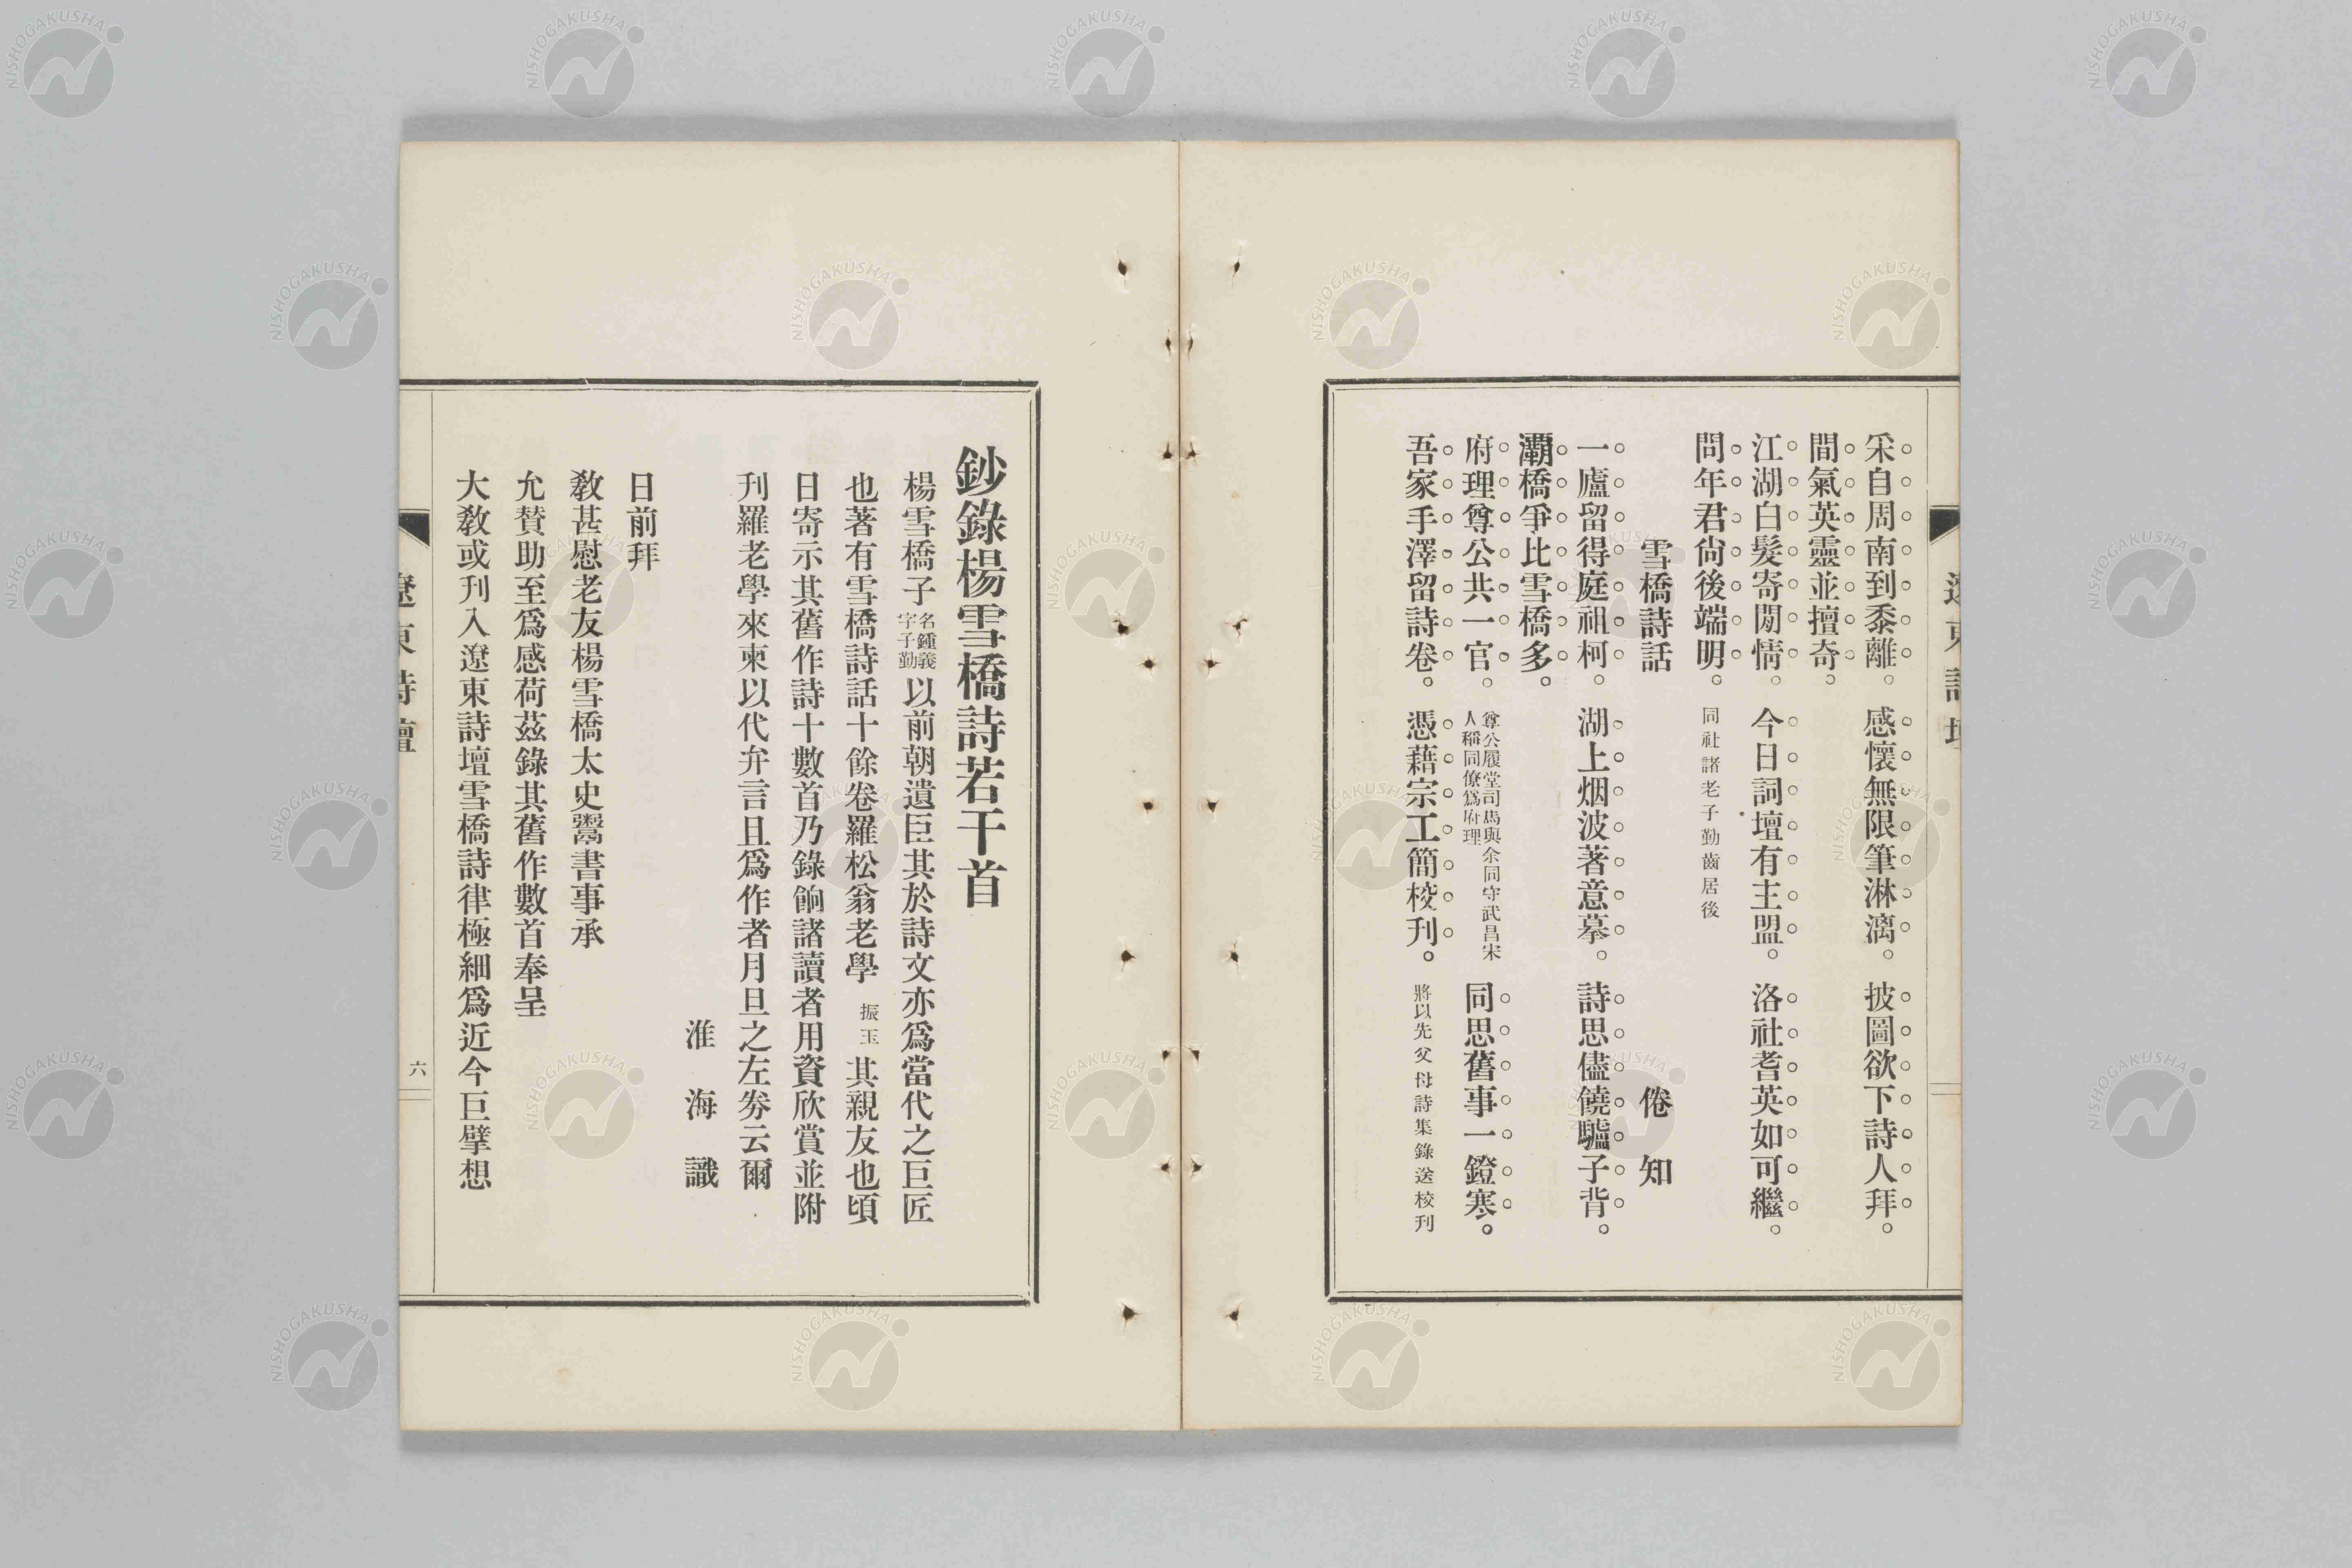 采自周南到黍離。感懷無限筆淋漓。披圖欲下詩人拜。
間氣英靈並擅奇。
江湖白髮寄閒情。今日詞壇有主盟。洛社耆英如可繼。
問年君尙後端明。同社諸老子勤齒居後
雪橋詩話　倦知
一廬留得庭祖柯。湖上烟波著意摹。詩思儘饒驢子背。
灞橋爭比雪橋多。
府理尊公共一官。尊公履堂司馬與余同守武昌宋人稱同僚爲府理同思舊事一鐙寒。
吾家手澤留詩卷。憑藉宗工簡校刋。將以先父母詩集錄送校刊
鈔錄楊雪橋詩若干首
楊雪橋子名鍾義字子勤以前朝遺臣其於詩文亦爲當代之巨匠
也著有雪橋詩話十餘卷羅松翁老學振玉其親友也頃
日寄示其舊作詩十數首乃錄餉諸讀者用資欣賞並附
刊羅老學來柬以代弁言且爲作者月旦之左劵云爾
淮海識
日前拜
敎甚慰老友楊雪橋太史鬻書事承
允賛助至爲感荷茲錄其舊作數首奉呈
大敎或刋入遼東詩壇雪橋詩律極細爲近今巨擘想
遼東詩壇
六
NISHOGAKUSHA